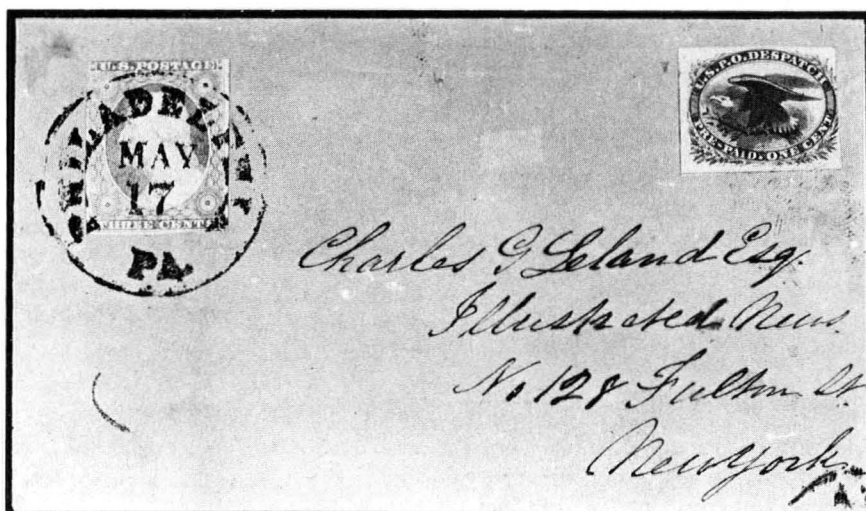 U.S. POSTAGE
PHILADELPHIA
MAY
17
PA.
THREE CENTS
U.S.P.O. DESPATCH
PRE-PAID. ONE CENT
Charles G Leland Esq.
Illustrated News.
No 128 Fulton St.
New York